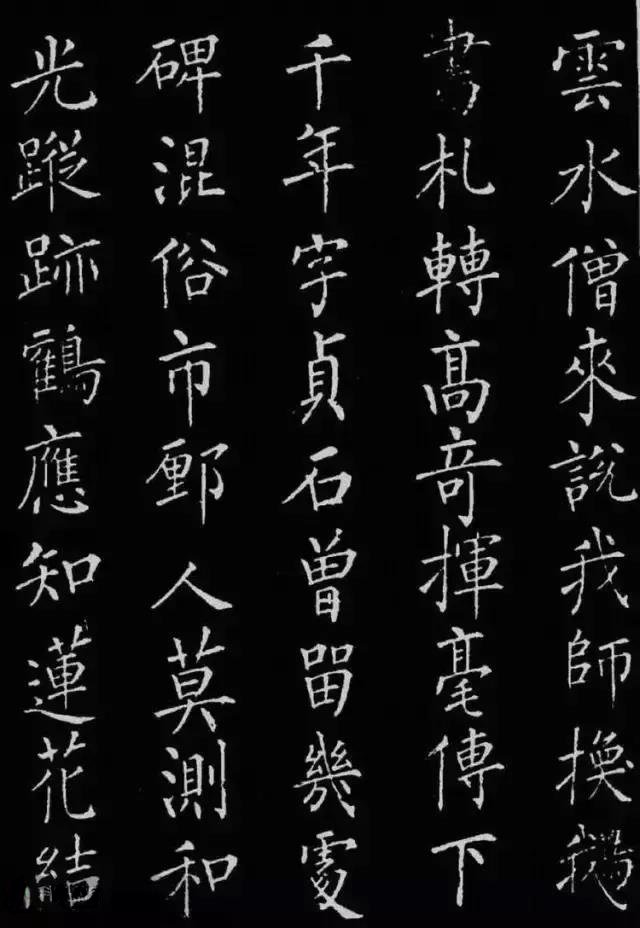 雲水僧來說我師換鵝
書札轉高奇揮毫傳下
千年字貞石曾留幾處
碑混俗市鄽人莫測和
光蹤跡鶴應知蓮花結